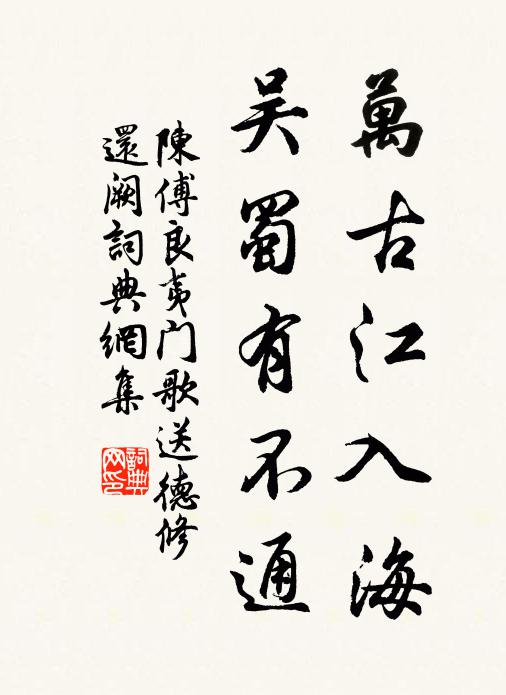 萬古江入海
吳蜀有不通
陳傅良夷門歌送德修
還闕詞典網集
詞典網印